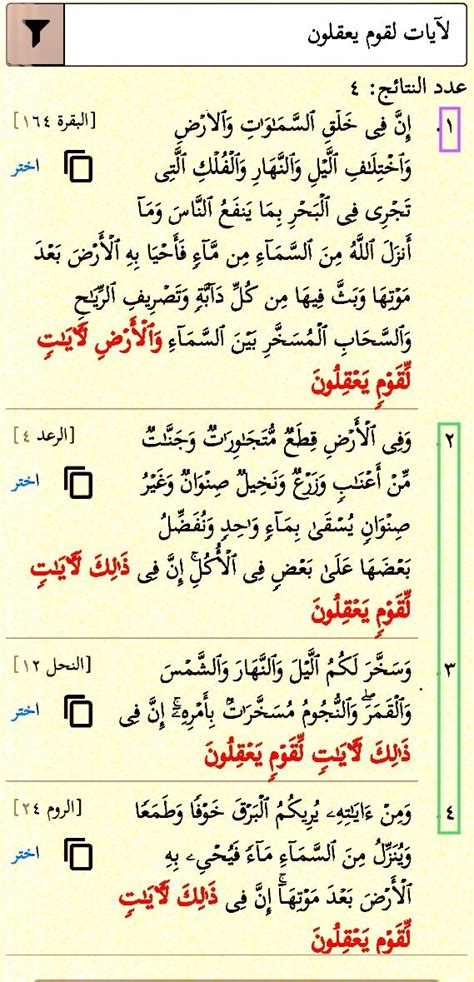 لآيات لقوم يعقلون
عدد النتائج: ٤
١. إِنَّ فِى خَلْقِ ٱلسَّمَٰوَٰتِ وَٱلْأَرْضِ [البقرة ١٦٤]
وَٱخْتِلَٰفِ ٱلَّيْلِ وَٱلنَّهَارِ وَٱلْفُلْكِ ٱلَّتِى اختر
تَجْرِى فِى ٱلْبَحْرِ بِمَا يَنفَعُ ٱلنَّاسَ وَمَآ
أَنزَلَ ٱللَّهُ مِنَ ٱلسَّمَآءِ مِن مَّآءٍ فَأَحْيَا بِهِ ٱلْأَرْضَ بَعْدَ
مَوْتِهَا وَبَثَّ فِيهَا مِن كُلِّ دَآبَّةٍ وَتَصْرِيفِ ٱلرِّيَٰحِ
وَٱلسَّحَابِ ٱلْمُسَخَّرِ بَيْنَ ٱلسَّمَآءِ وَٱلْأَرْضِ لَءَايَٰتٍ
لِّقَوْمٍ يَعْقِلُونَ
٢. وَفِى ٱلْأَرْضِ قِطَعٌ مُّتَجَٰوِرَٰتٌ وَجَنَّٰتٌ [الرعد ٤]
مِّنْ أَعْنَٰبٍ وَزَرْعٌ وَنَخِيلٌ صِنْوَانٌ وَغَيْرُ اختر
صِنْوَانٍ يُسْقَىٰ بِمَآءٍ وَٰحِدٍ وَنُفَضِّلُ
بَعْضَهَا عَلَىٰ بَعْضٍ فِى ٱلْأُكُلِ إِنَّ فِى ذَٰلِكَ لَءَايَٰتٍ
لِّقَوْمٍ يَعْقِلُونَ
٣. وَسَخَّرَ لَكُمُ ٱلَّيْلَ وَٱلنَّهَارَ وَٱلشَّمْسَ [النحل ١٢]
وَٱلْقَمَرَ ۖ وَٱلنُّجُومُ مُسَخَّرَٰتٌۢ بِأَمْرِهِۦٓ ۗ إِنَّ فِى اختر
ذَٰلِكَ لَءَايَٰتٍ لِّقَوْمٍ يَعْقِلُونَ
٤. وَمِنْ ءَايَٰتِهِۦ يُرِيكُمُ ٱلْبَرْقَ خَوْفًا وَطَمَعًا [الروم ٢٤]
وَيُنَزِّلُ مِنَ ٱلسَّمَآءِ مَآءً فَيُحْىِۦ بِهِ اختر
ٱلْأَرْضَ بَعْدَ مَوْتِهَآ ۚ إِنَّ فِى ذَٰلِكَ لَءَايَٰتٍ
لِّقَوْمٍ يَعْقِلُونَ